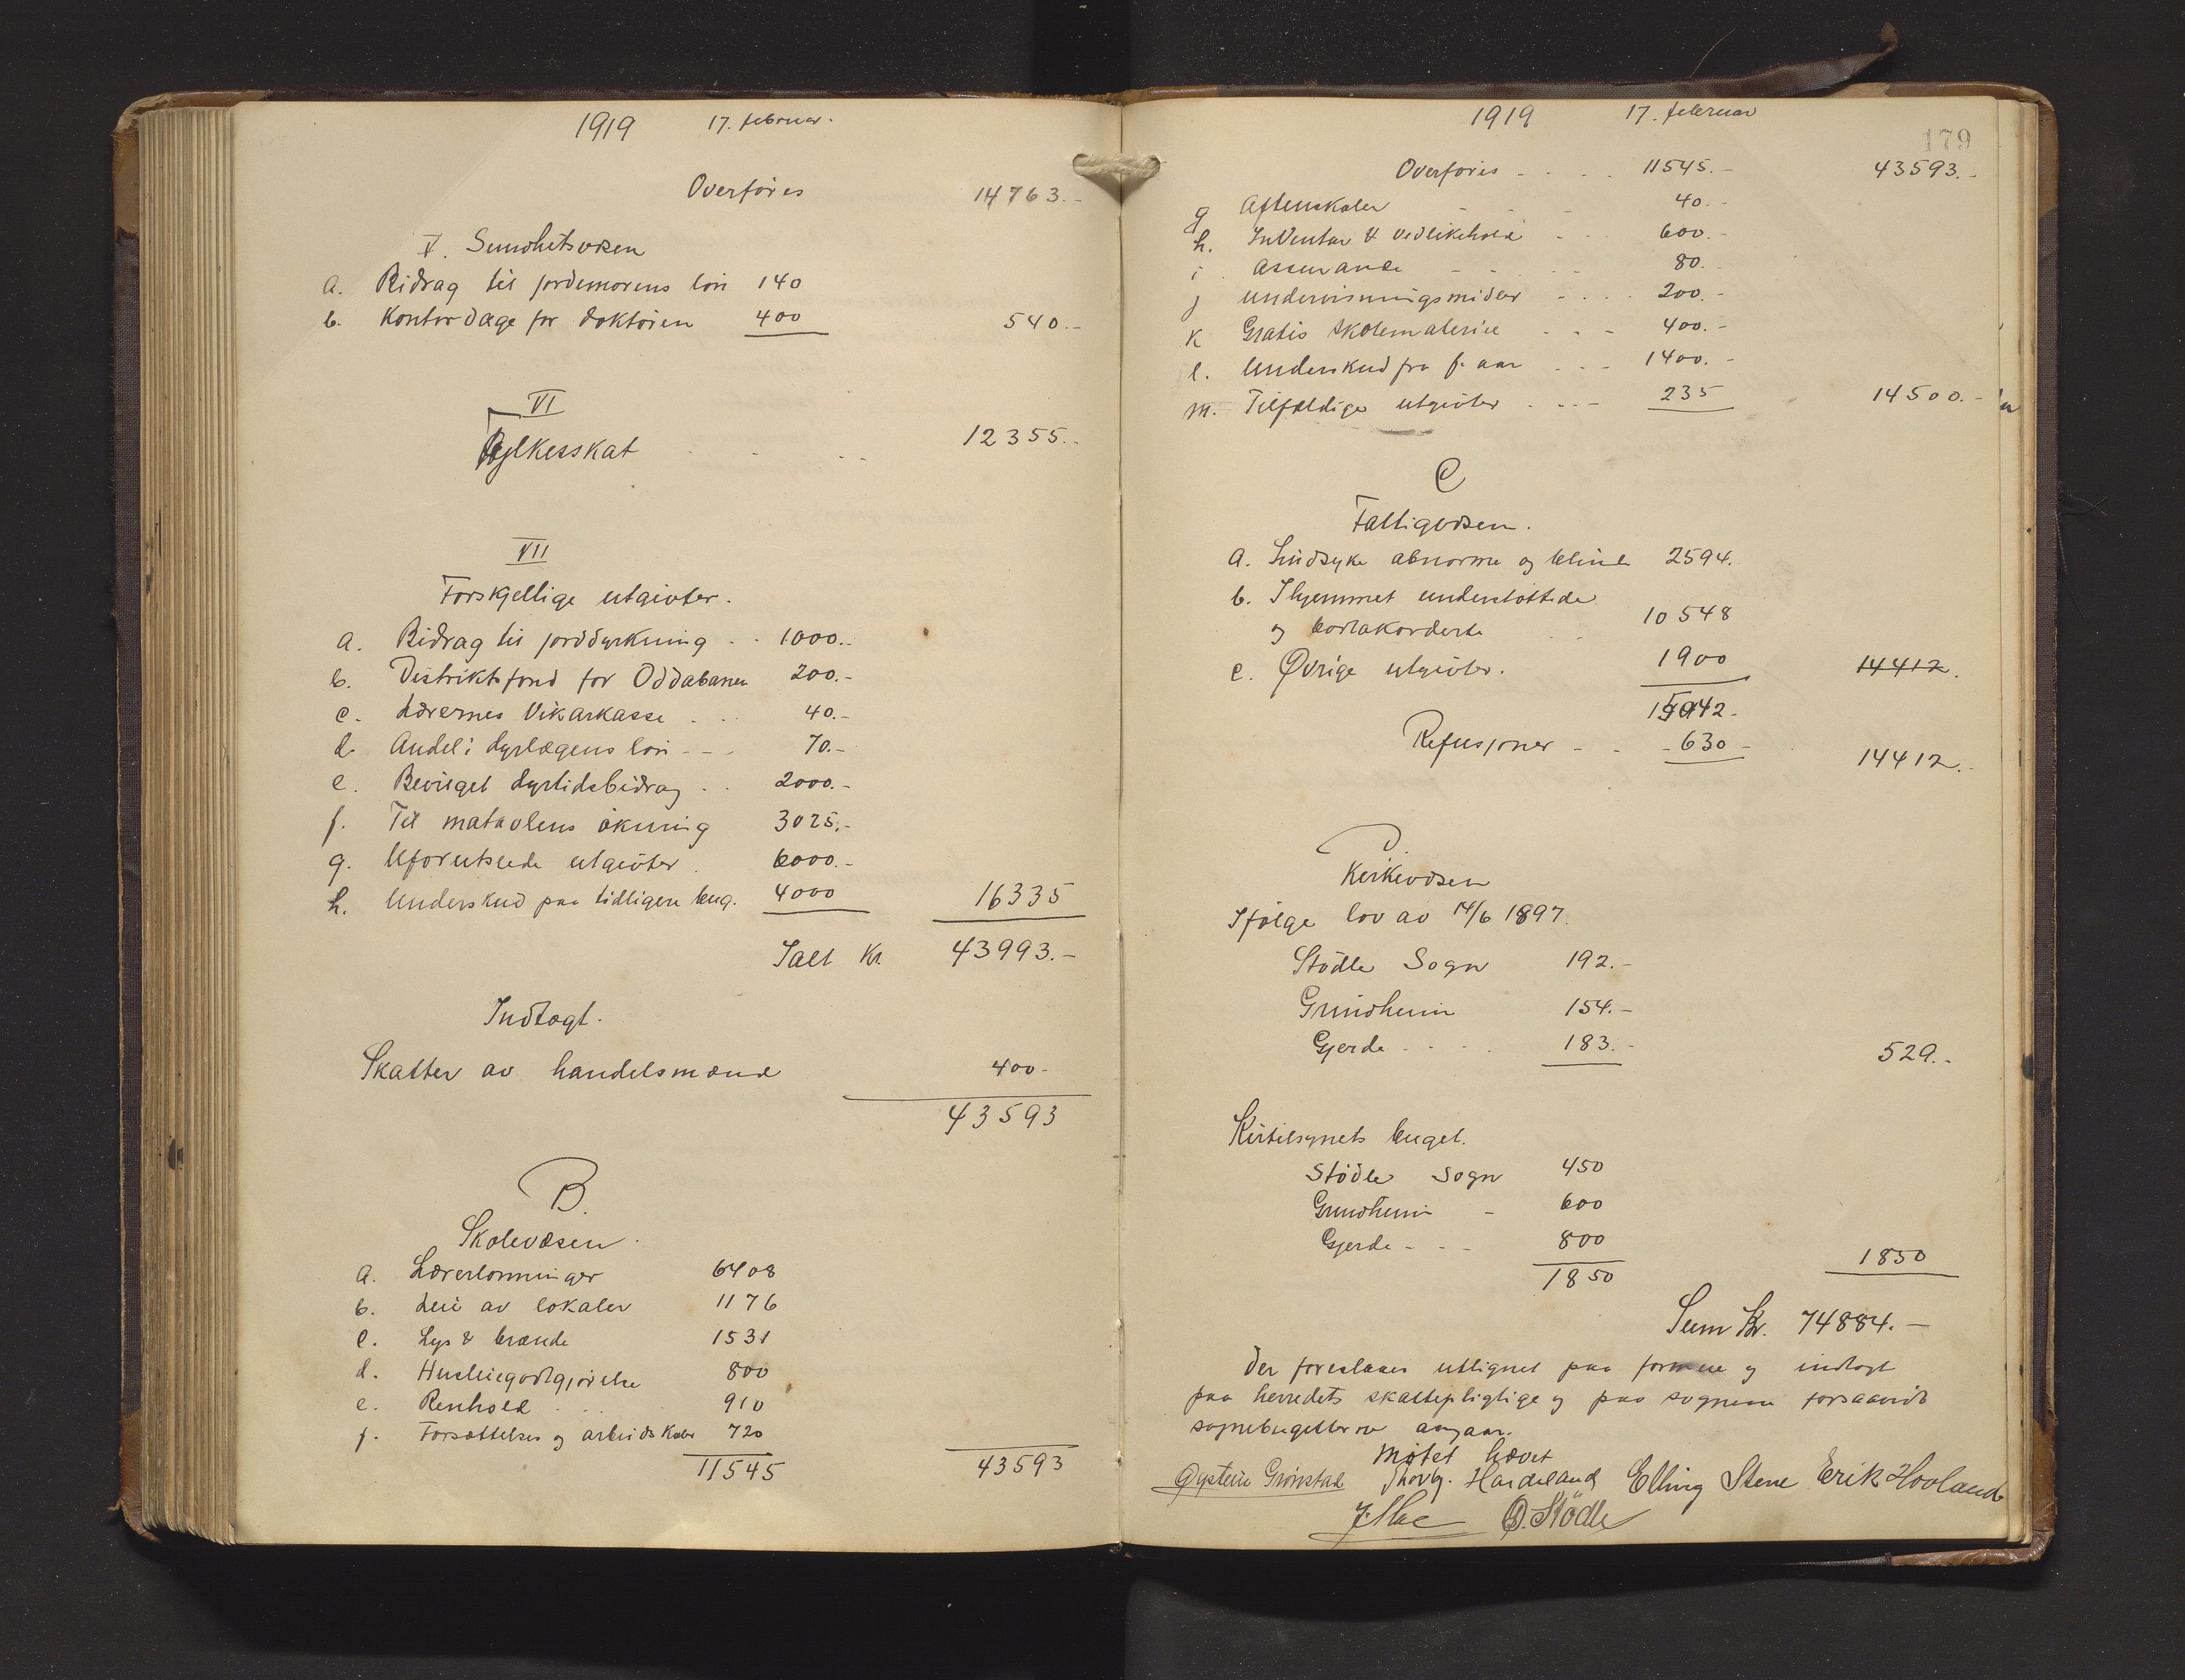 1919 17. februar.
Overføres 14763.-
V. Sundhetsvæsen
a. Bidrag til jordemorens løn 140
b. Kontordage for doktoren 400 540.-
VI
Fylkesskat 12355.-
VII
Forskjellige utgivter.
a. Bidrag til jorddyrkning 1000.-
b. Distriktsfond for Oddabanen 200.-
c. Lærernes Vikarkasse 40.-
d. Andel i dyrlægens løn 70.-
e. Bevilget dyrtidsbidrag 2000.-
f. Til matavlens økning 3025.-
g. Uforutseede utgivter 6000.-
h. Underskud paa tidligere bug. 4000 16335
Ialt Kr. 43993.-
Indtægt.
Skatter av handelsmænd 400.-
43593
B.
Skolevæsen.
a. Lærerlønninger 6408
b. Leie av lokaler 1176
c. Lys & brænde 1531
d. Husleiegodtgjørelse 800
e. Renhold 910
f. Forsættelses og arbeidskoler 720
11545 43593
1919 17. februar
179
Overføres 11545.- 43593.-
g Aftenskoler 40.-
h. Inventar & vedlikehold 600.-
i. Assurance 80.-
j undervisningsmidler 200.-
k Gratis skolemateriel 400.-
l. Underskud fra f. aar 1400.-
m. Tilfældige utgivter 235 14500.-
C
Fattigvæsen.
a. Sindsyke abnorme og blinde 2594.
b. I hjemmet understøttede
og bortakorderte 10548
c. Øvrige utgivter. 1900 14412.
15042.-
Refusjoner 630 14412.-
D.
Kirkevæsen
Ifølge lov av 14/6 1897.
Stødle Sogn 192.-
Grindheim 154.-
Gjerde 183.- 529.-
Kirtilsynets buget.
Stødle Sogn 450
Grindheim - 600
Gjerde - 800 1850
1850
Sum Kr. 74884.-
Der foreslaaes utlignet paa formue og indtægt
paa herredets skattepligtige og paa sognene forsaavidt
sognebugetterne angaar.
Møtet hævet
Øystein Grønstad Thorbj. Hardeland Elling Stene Erik Hovland
J. Mæ O. Stødle